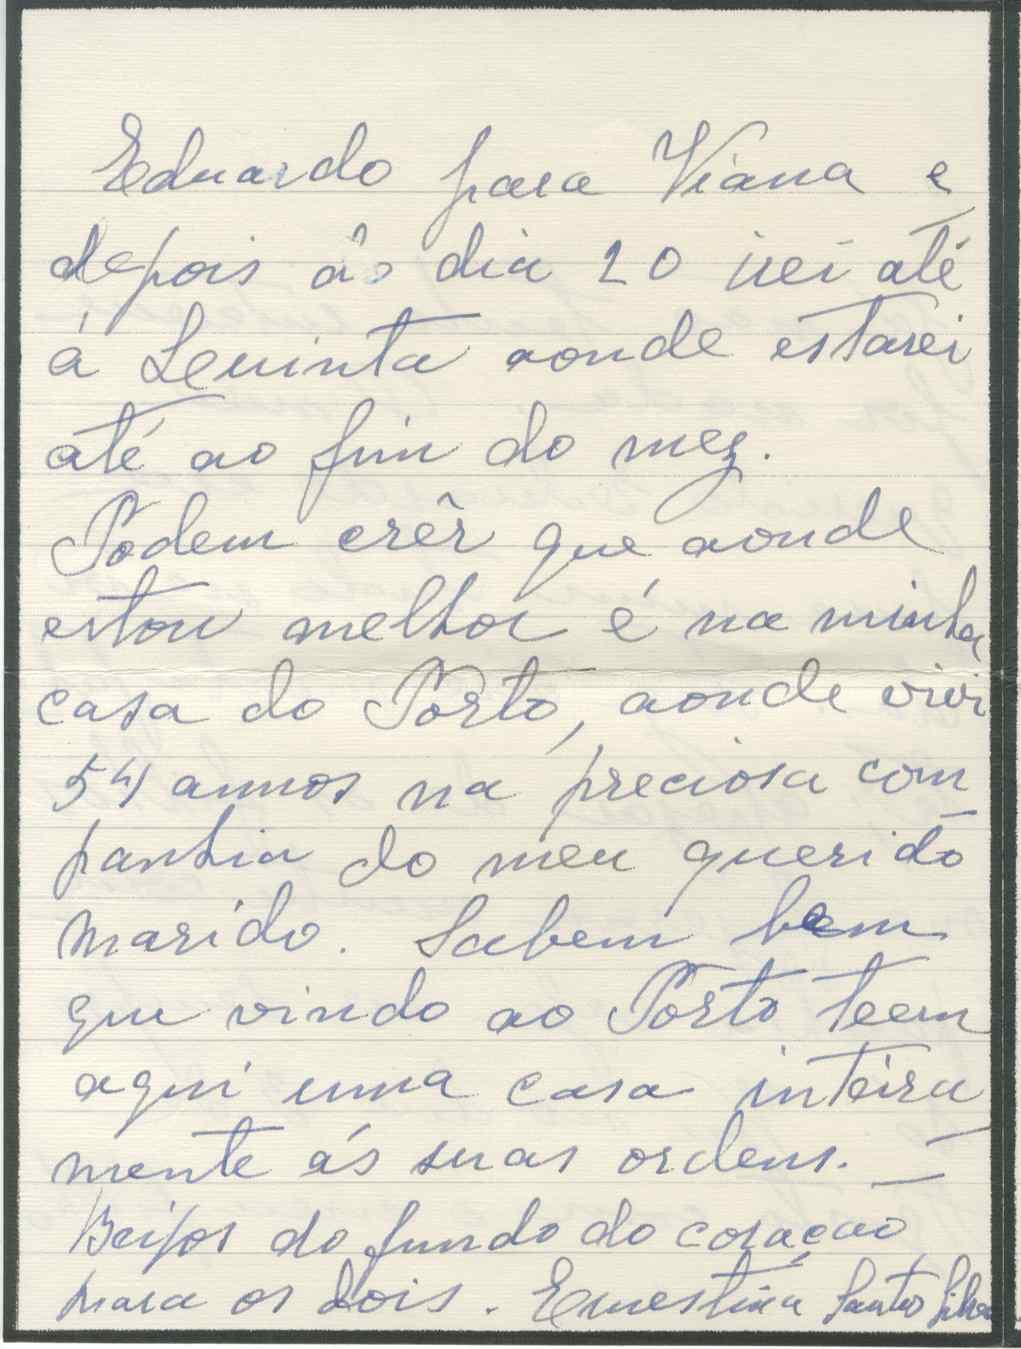 Eduardo para Viana e
depois ao dia 20 irei até
á Seninta aonde estarei
até ao fim do mez.
Podem crêr que aonde
estou melhor é na minha
casa do Porto, aonde vivi
54 annos na preciosa com
panhia do meu querido
marido. Sabem bem
que vindo ao Porto teem
aqui uma casa inteira
mente ás suas ordens. —
Beijos do fundo do coração
para os dois. Ernestina Santos Silva